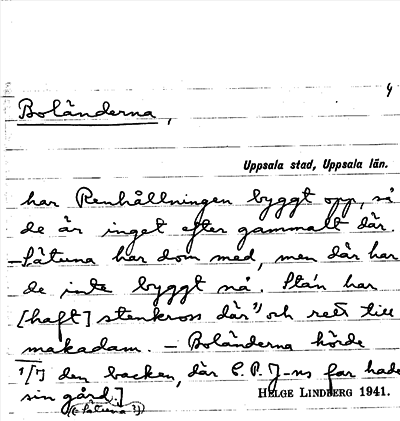 4
Boländerna,
Uppsala stad, Uppsala län.
har Renhållningen byggt opp, så
de är inget efter gammalt där.
– Såtuna har dom med, men där har
de inte byggt nå. Sta'n har
[haft] stenkross där¹⁾ och rest till
makadam. – Boländerna hörde
¹⁾[ɔ: den backen, där C. P. J-ns far hade
sin gård.]
(Såtuna?)
HELGE LINDBERG 1941.